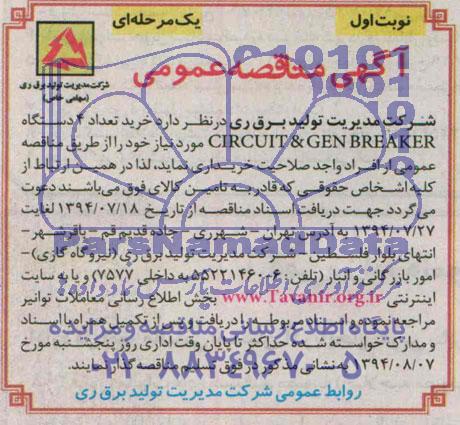 نوبت اول
یک مرحله‌ای
آگهی مناقصه عمومی
شرکت مدیریت تولید برق ری
(سهامی خاص)
شرکت مدیریت تولید برق ری در نظر دارد خرید تعداد ۴ دستگاه
CIRCUIT & GEN BREAKER مورد نیاز خود را از طریق مناقصه
عمومی از افراد واجد صلاحیت خریداری نماید، لذا در همین ارتباط از
کلیه اشخاص حقوقی که قادر به تامین کالای فوق می‌باشند دعوت
می‌گردد جهت دریافت اسناد مناقصه از تاریخ ۱۳۹۴/۰۷/۱۸ لغایت
۱۳۹۴/۰۷/۲۷ به آدرس تهران - شهرری - جاده قدیم قم - باقرشهر -
انتهای بلوار فلسطین - شرکت مدیریت تولید برق ری (نیروگاه گازی) -
امور بازرگانی و انبار (تلفن: ۶-۵۵۲۲۱۴۶۰ داخلی ۷۵۷۷) و یا به سایت
اینترنتی www.Tavanir.org.ir بخش اطلاع رسانی معاملات توانیر
مراجعه نموده و اسناد مربوطه را دریافت و پس از تکمیل همراه با اسناد
و مدارک خواسته شده حداکثر تا پایان وقت اداری روز پنجشنبه مورخ
۱۳۹۴/۰۸/۰۷ به نشانی مذکور در فوق تسلیم مناقصه گذار نمایند.
روابط عمومی شرکت مدیریت تولید برق ری
ParsNamadData
مرکز فرآوری اطلاعات پارس نماد داده‌ها
پایگاه اطلاع رسانی مناقصه و مزایده
۰۲۱-۸۸۳۴۹۶۷۰-۵